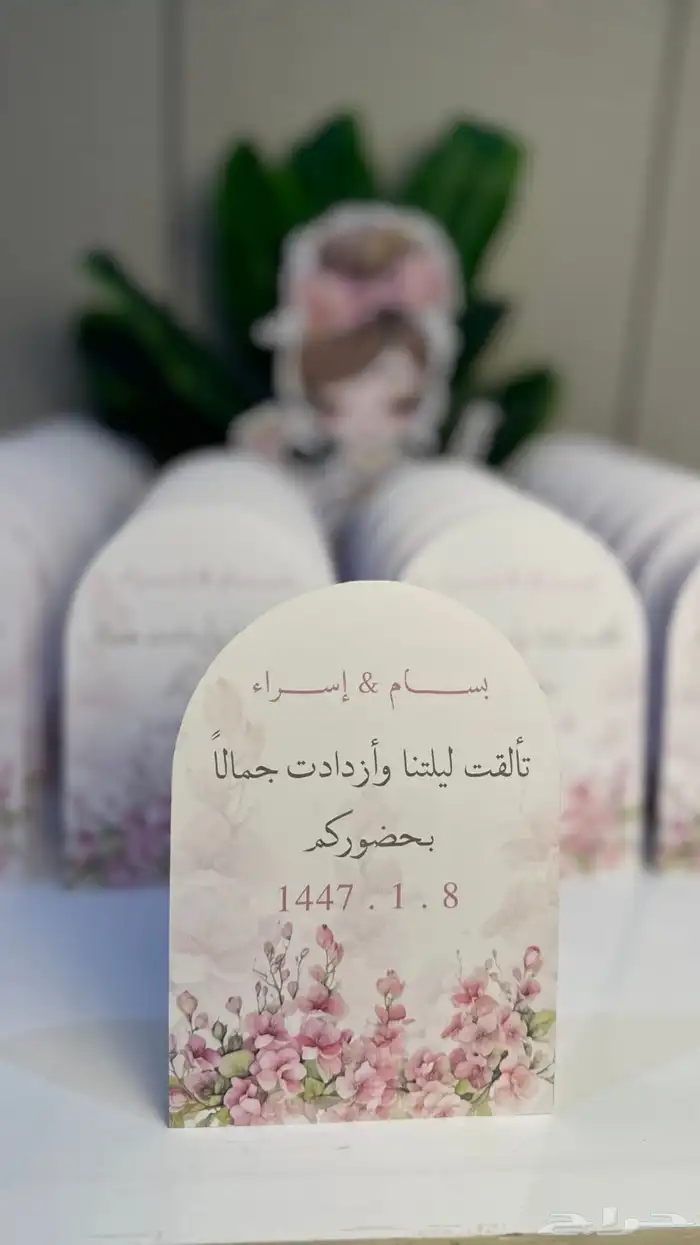 بســـام & إســـراء
تألقت ليلتنا وأزدادت جمالاً
بحضوركم
1447 . 1 . 8
حراج